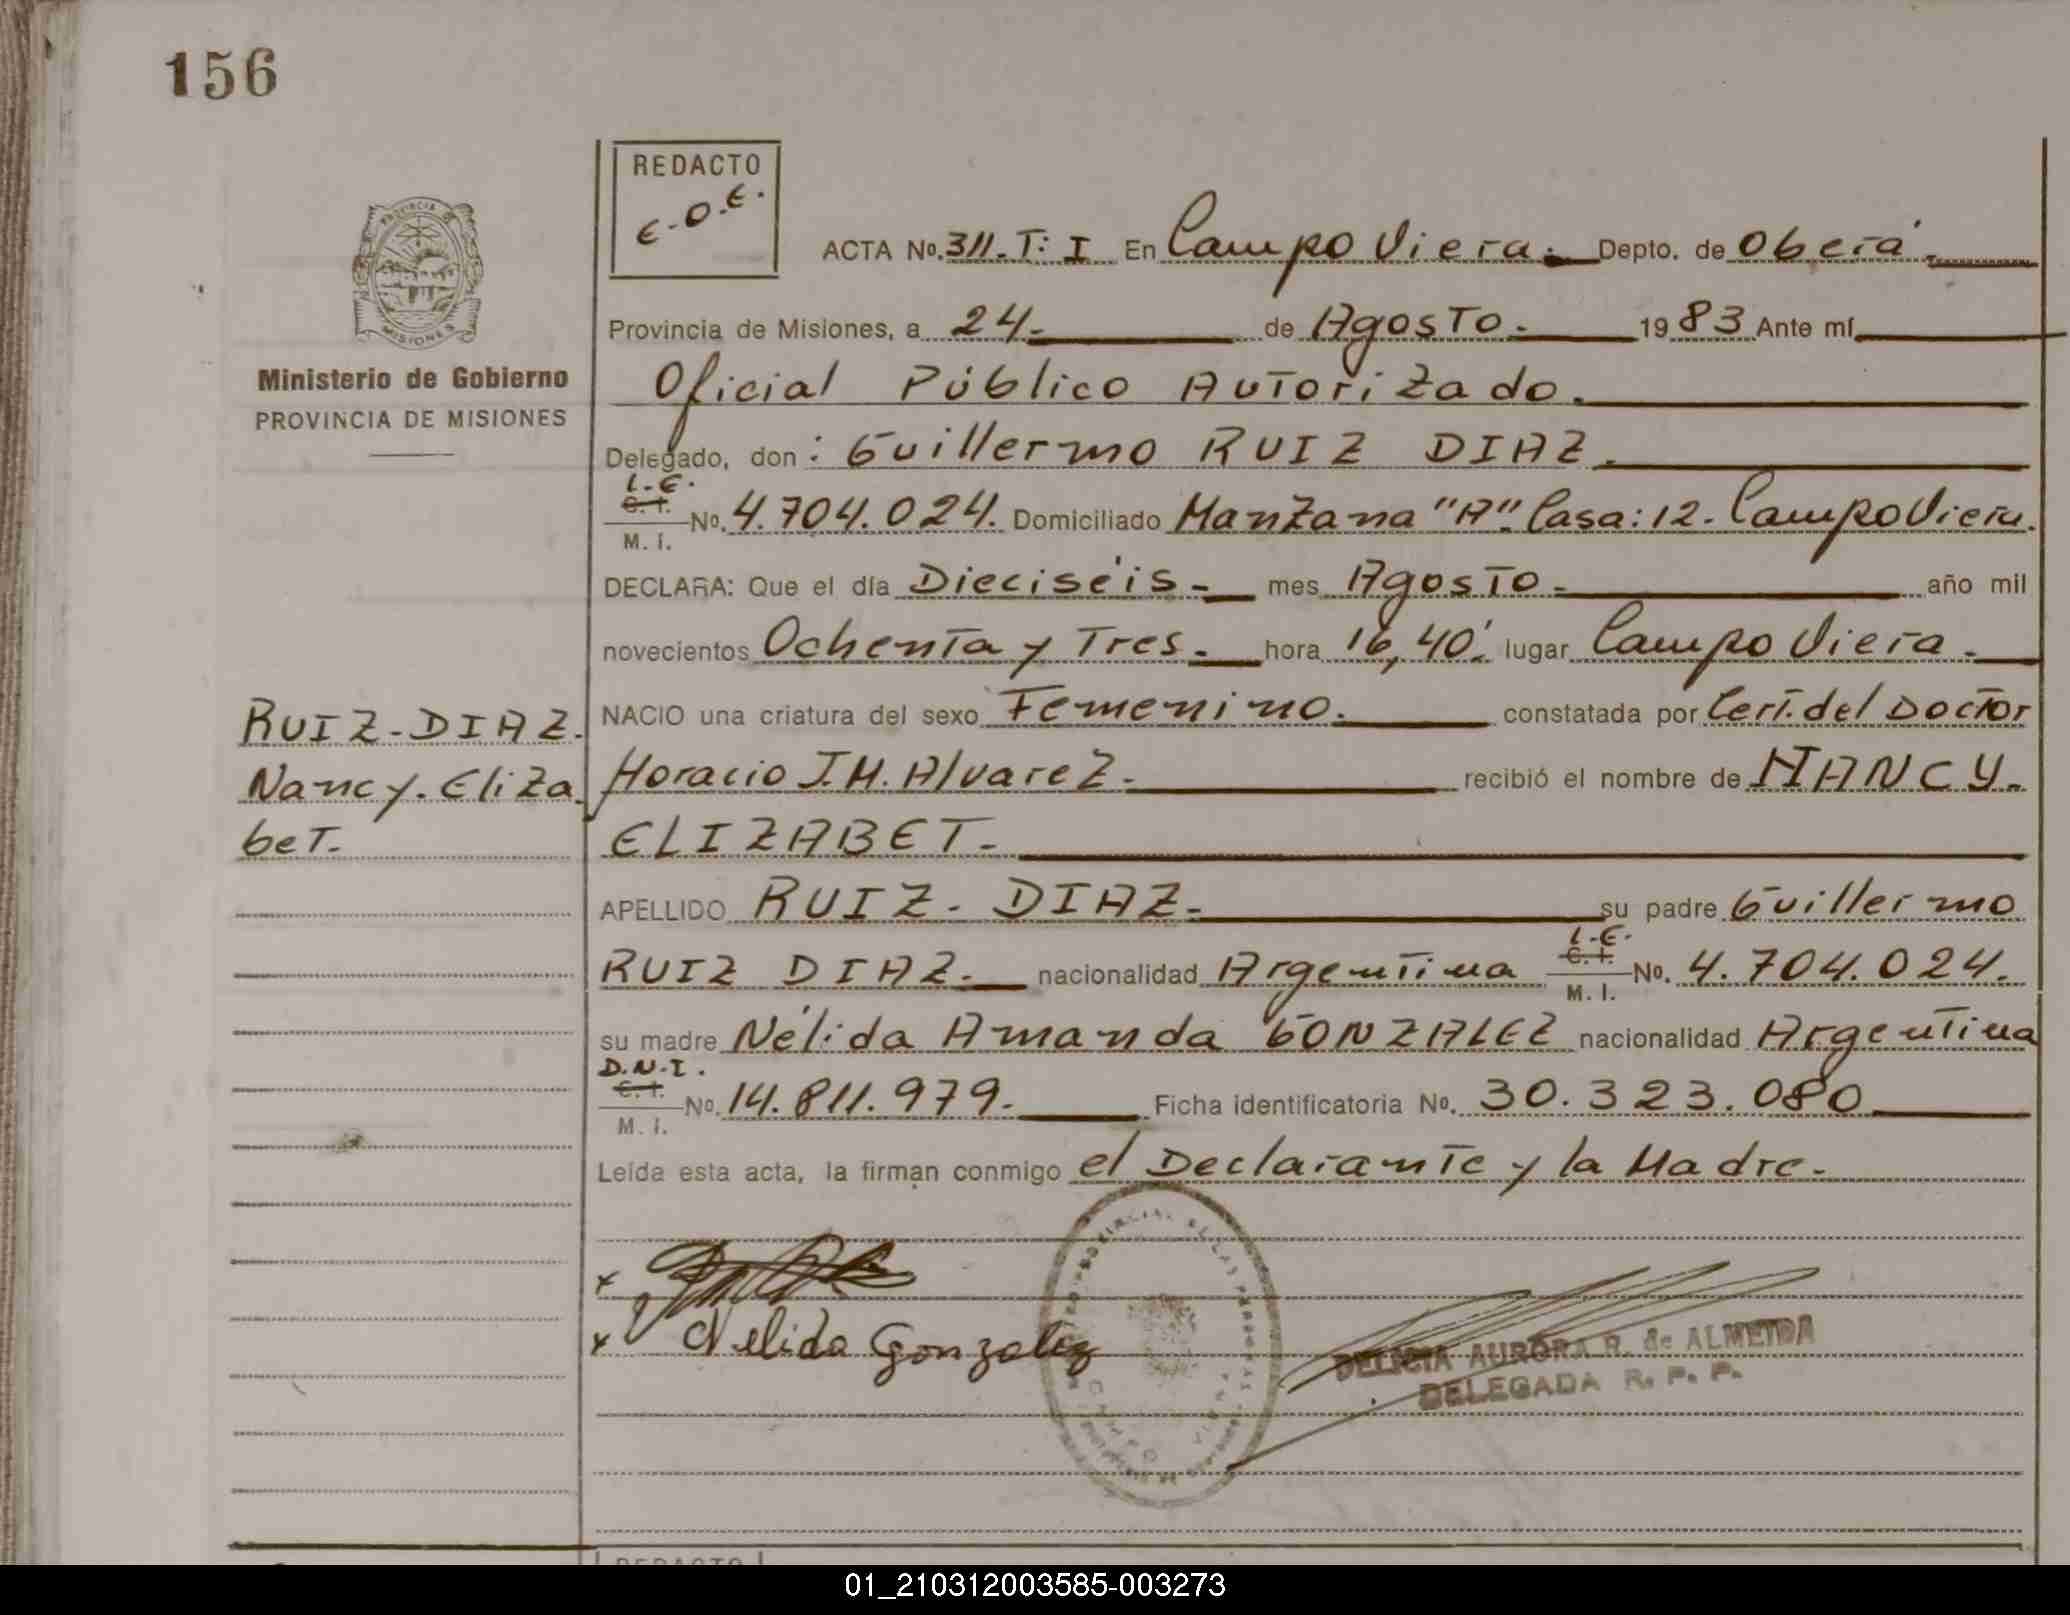 156
REDACTO
E.O.E.
ACTA No. 311. T: I En Campo Viera. Depto. de Oberá.
Provincia de Misiones, a 24. de Agosto. 1983 Ante mí
Ministerio de Gobierno
PROVINCIA DE MISIONES
Oficial Público Autorizado.
Delegado, don: Guillermo RUIZ DIAZ.
L.E.
C.I.
M. I.
No. 4.704.024. Domiciliado Manzana "A". Casa: 12. Campo Viera.
DECLARA: Que el día Dieciséis. mes Agosto. año mil
novecientos Ochenta y Tres. hora 16,40'. lugar Campo Viera.
NACIO una criatura del sexo Femenino. constatada por Cert. del Doctor
Horacio J.M. Alvarez. recibió el nombre de NANCY.
ELIZABET.
RUIZ-DIAZ.
Nancy. Eliza
bet.
APELLIDO RUIZ. DIAZ. su padre Guillermo
RUIZ DIAZ. nacionalidad Argentina L.E. C.I. M. I. No. 4.704.024.
su madre Nélida Amanda GONZALEZ nacionalidad Argentina
D.N.I.
C.I.
M. I.
No. 14.811.979. Ficha identificatoria No. 30.323.080
Leída esta acta, la firman conmigo el Declarante y la Madre.
x
x Nelida Gonzalez
CAMPO VIERA
DELICIA AURORA R. de ALMEIDA
DELEGADA R. P. P.
REDACTO
01_210312003585-003273